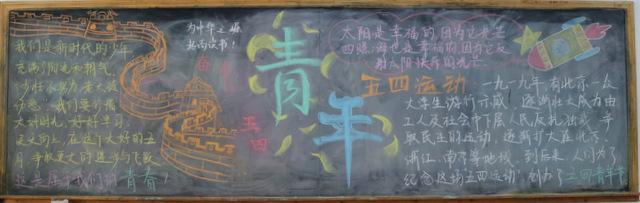 我们是新时代的少年
充满阳光和朝气，
少壮不努力，老大徒
伤悲。我们要珍惜
大好时光，好好学习，
天天向上，在这个大好的五
月，争取更大的进步与飞跃
这是属于我们的青春！
为中华之崛
起而读书！
青
五
四
青
年
太阳是幸福的，因为它光芒
四照，海也是幸福的，因为它反
射太阳快乐的光芒
五四运动
一九一九年，有北京一众
大学生游行示威，逐渐壮大成为由
工人及社会中下层人民反抗独裁，争
取民主的运动，逐渐扩大在北京、
浙江、南京等地域，到后来，人们为了
纪念这场五四运动，创办了五四青年节